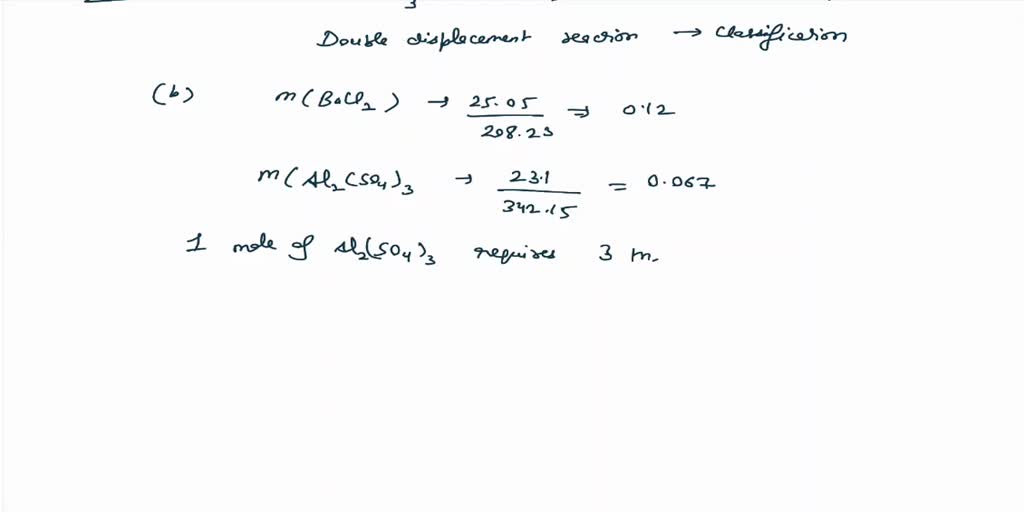 3
Double displacement reaction → classification
(b) m(BaCl2) → 25.05 / 208.23 ⇒ 0.12
m(Al2(SO4)3 → 23.1 / 342.15 = 0.067
1 mole of Al2(SO4)3 requires 3 m.